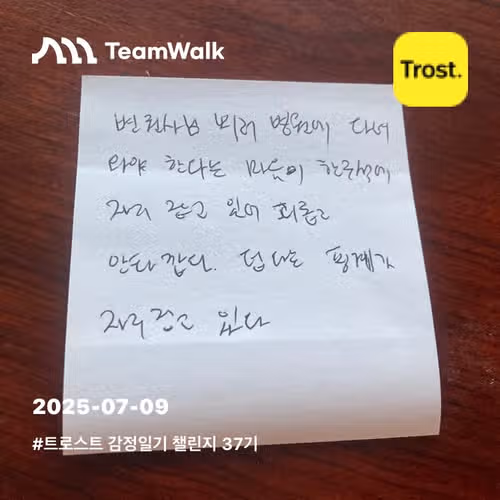 TeamWalk
Trost.
변호사님 뵈러 병원에 다녀
와야 한다는 마음이 한구석에
자리 잡고 있어 괴롭고
안타깝다. 덥다는 핑계가
자리 잡고 있다
2025-07-09
#트로스트 감정일기 챌린지 37기